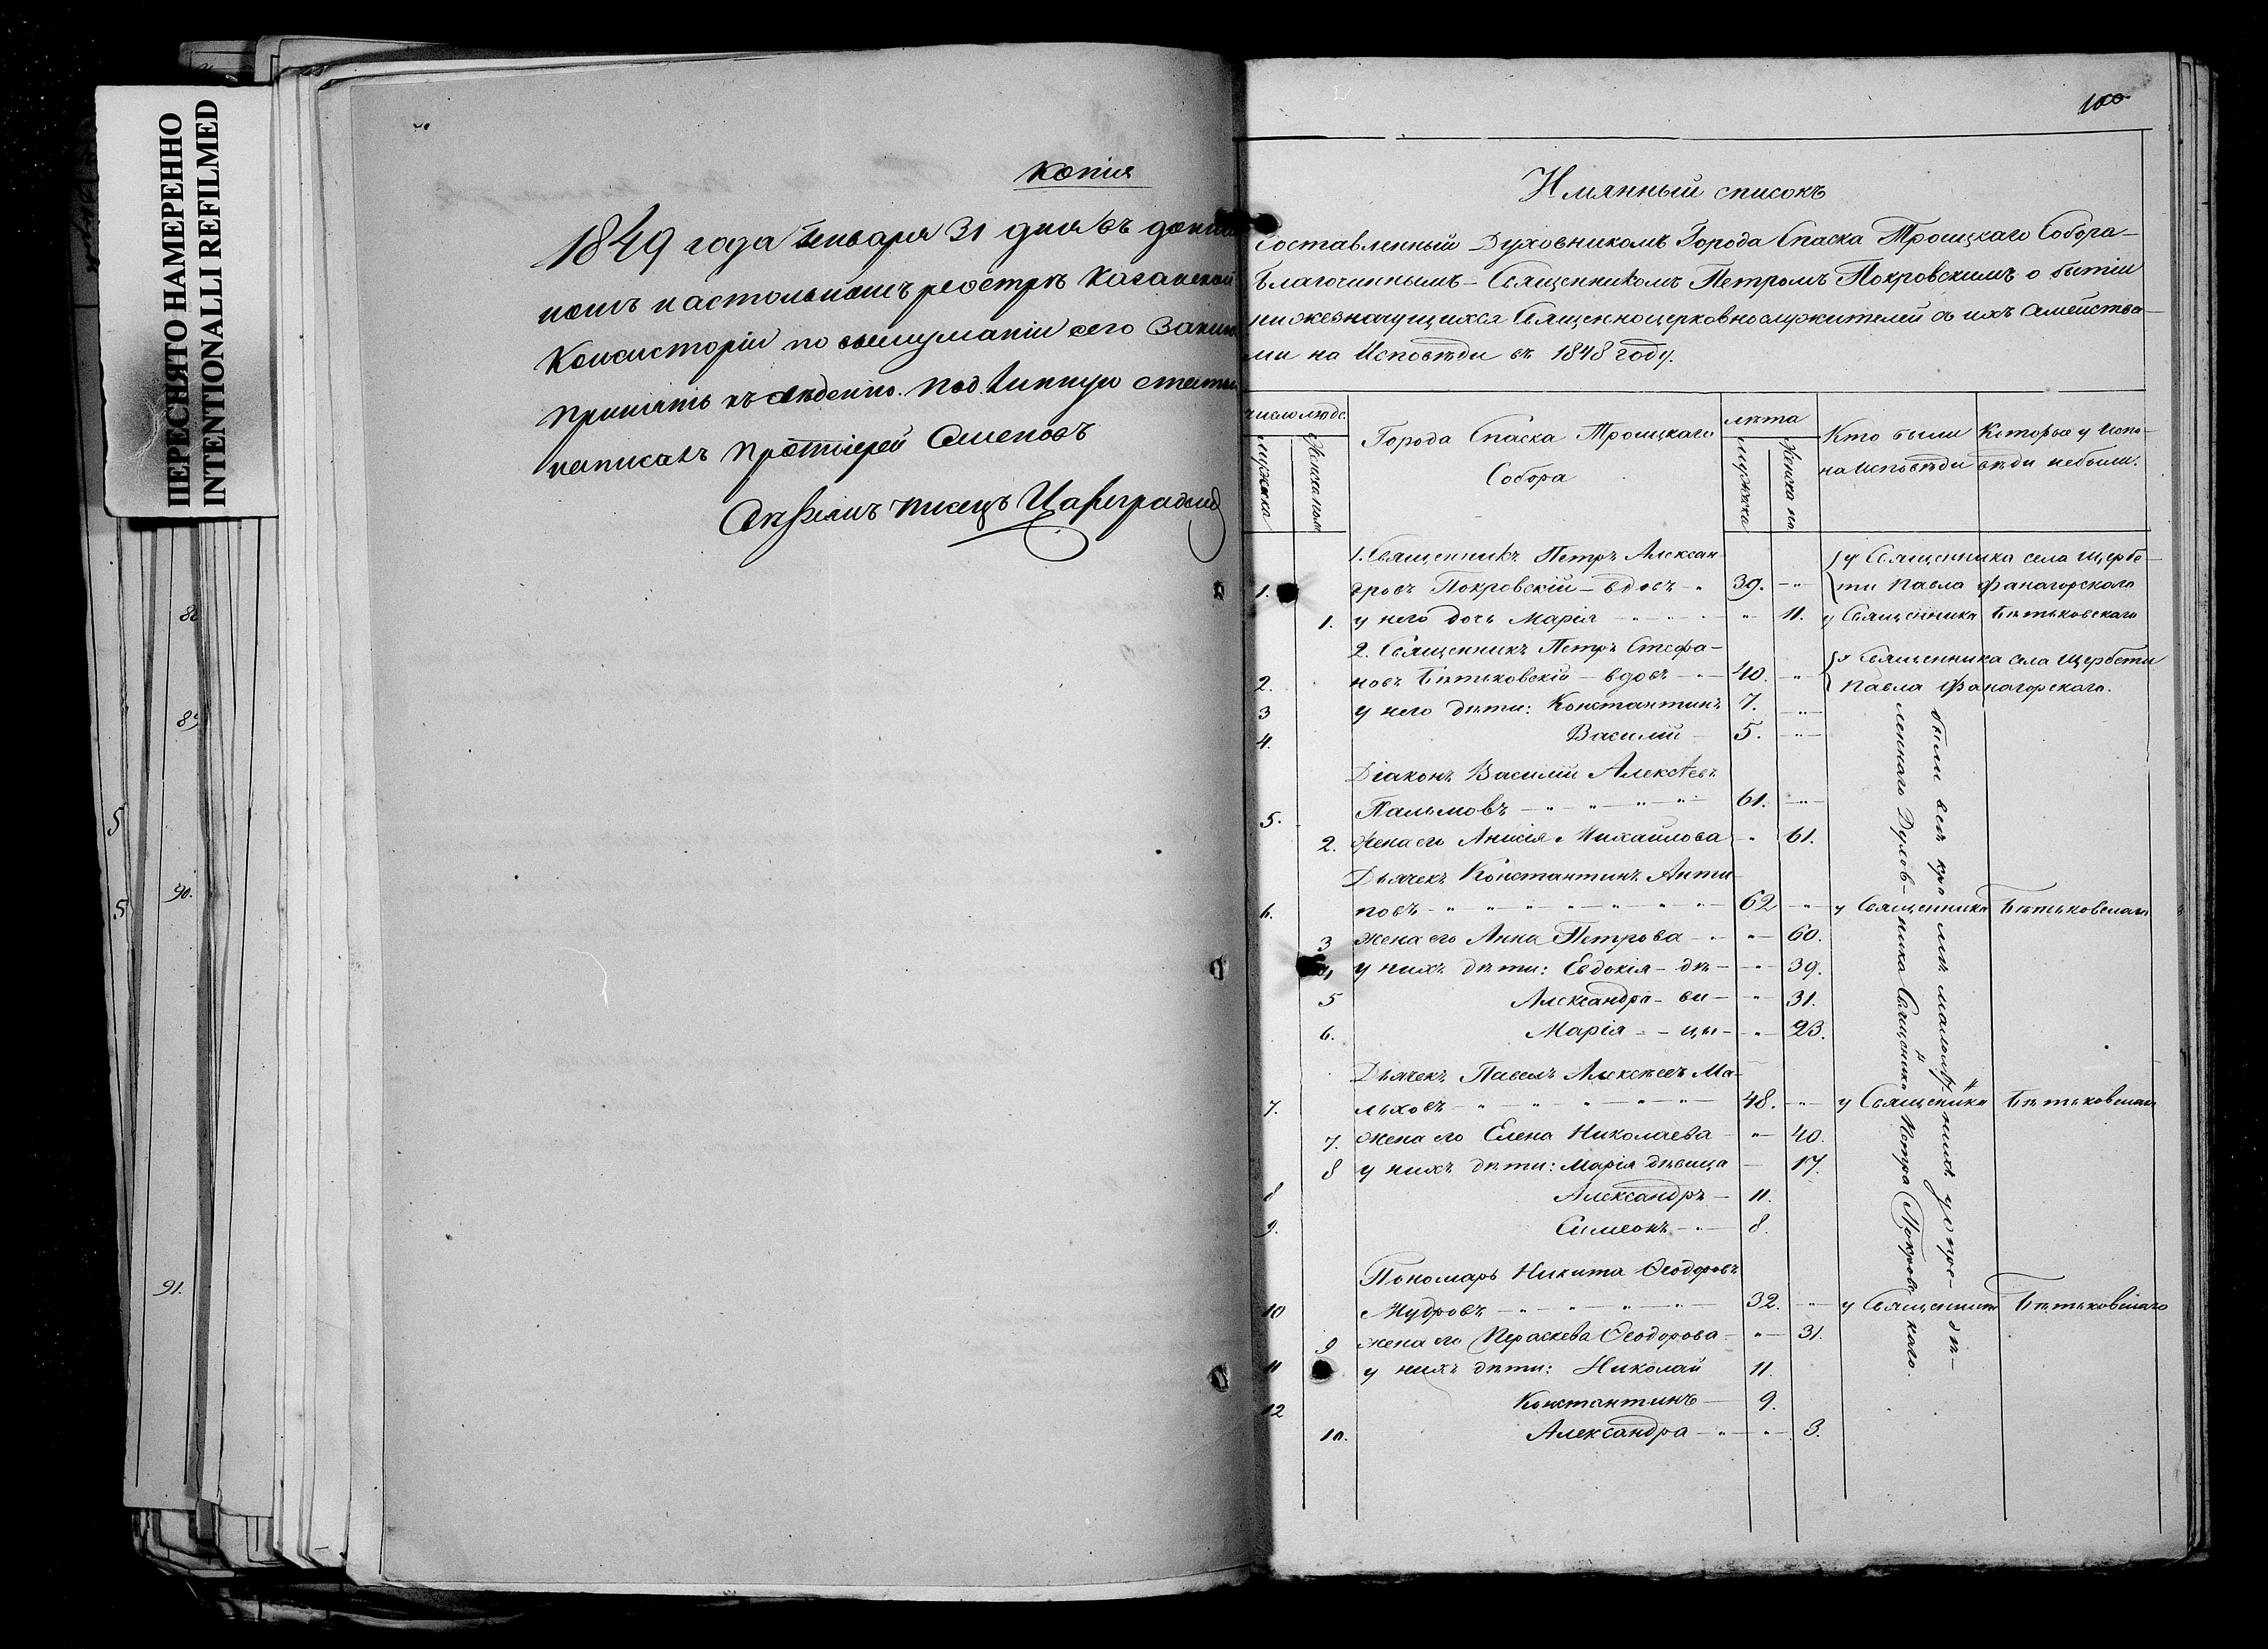 ПЕРЕСНЯТО НАМЕРЕННО
INTENTIONALLI REFILMED
88
89
5
90.
5
91.
копія
1849 года Генваря 31 дня въ
настольномъ реэстрѣ Казанской
Консисторіи по выслушаніи сего
Принять къ свѣденію. Подлинную
написалъ Протоіерей Семеновъ
писецъ Цареградскій
100
Имянный списокъ
составленный Духовникомъ Города Спаска Троицкаго Собора
Благочиннымъ – Священникомъ Петромъ Покровскимъ о бытіи
нижезначущихся Священноцерковнослужителей съ ихъ семейства-
ми на Исповѣди въ 1848 году.
число люде.
мужска
Женска пол
Города Спаска Троицкаго
Собора
лѣта
мужска
Женска по.
Кто были
на Исповѣди
Которые у Испо-
вѣди небыли.
1. Священникъ Петръ Алексан-
1. дровъ Покровскій – вдовъ – " 39. – " –
{ у Священника села Щербе-
ти Павла Фанагорскаго
1. у него дочь Марія – " – 11. у Священника Бѣтьковскаго
2. Священникъ Петръ Стефа-
2. новъ Бѣтьковскій – вдовъ – " – 40. "
{ у Священника села Щербети
Павла Фанагорскаго.
3 у него дѣти: Константинъ 7. – " –
4. Василій – 5. – " –
Діаконъ Василій Алексѣевъ
5. Пальмовъ – " – " – " – " – 61. – " –
2. Жена его Анисія Михайлова – " – 61.
Дьячекъ Константинъ Анти-
6. повъ – " – " – " – " – 62 – " – у Священника Бѣтьковскаго
3 жена его Анна Петрова – " – " – 60.
4 у нихъ дѣти: Евдокія – дѣ – " – 39.
5 Александра – ви – " – 31.
6. Марія – – цы – " – 23.
Дьячекъ Павелъ Алексѣевъ Ма-
7. льховъ – " – " – " – " – 48. – " – у Священника Бѣтьковскаго
7. жена его Елена Николаева – " – 40.
8 у нихъ дѣти: Марія дѣвица – 17.
8 Александръ – 11.
9. Симеонъ – " – 8.
Пономарь Никита Ѳеодоровъ
10 Мудровъ – " – " – " – " – 32. – " – у Священника Бѣтьковскаго
9 жена его Параскева Ѳеодорова – " – 31.
11 у нихъ дѣти: Николай 11.
12 Константинъ – 9.
10. Александра – " – " – 3.
были всѣ кромѣ малолѣтнихъ у опредѣ-
леннаго Духовника Священника Петра Покровскаго.